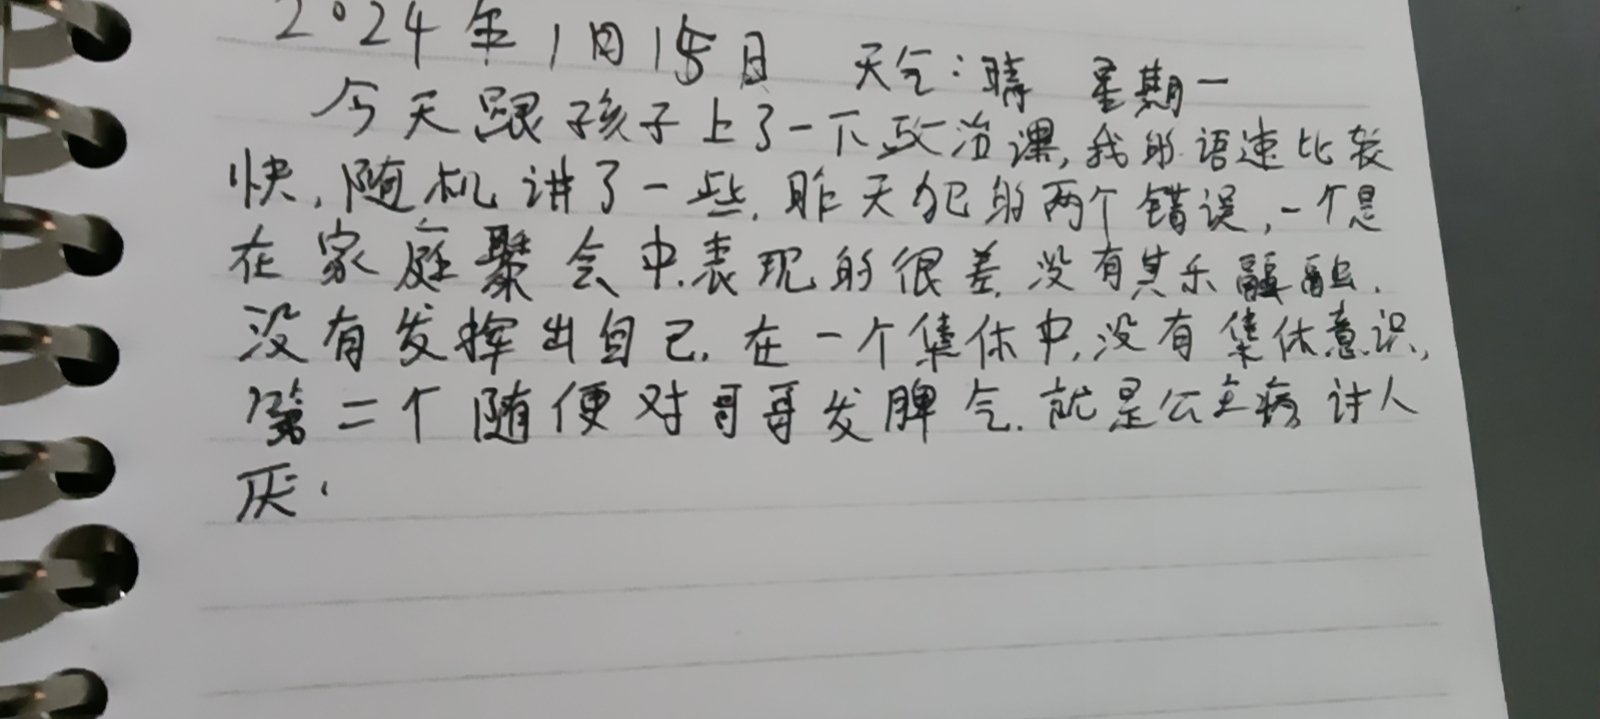 2024年1月15日 天气:晴 星期一
今天跟孩子上了一下政治课,我的语速比较
快,随机讲了一些,昨天犯的两个错误,一个是
在家庭聚会中,表现的很差,没有其乐融融,
没有发挥出自己,在一个集体中,没有集体意识,
第二个随便对哥哥发脾气,就是公主病讨人
厌.